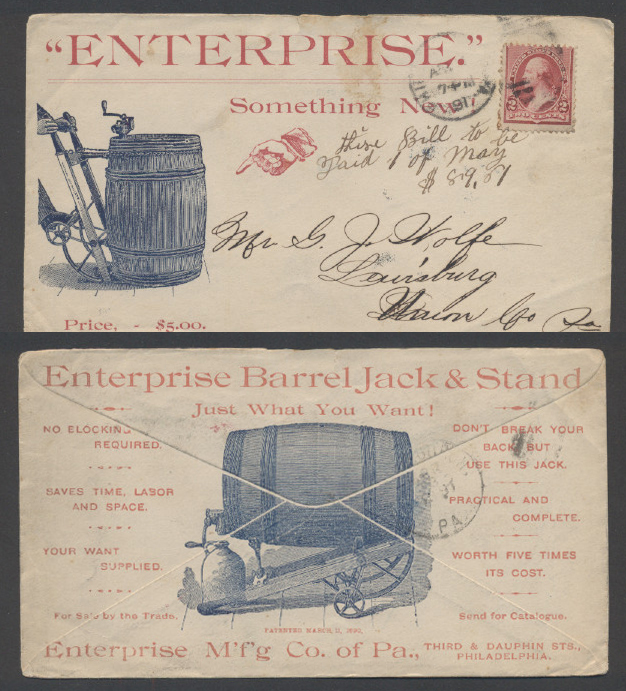 "ENTERPRISE."
Something New!
7-PM
TWO CENTS
2 2
this Bill to be
Paid 1 of May
$ 89,57
Mr G. J. Wolfe
Lewisburg
Union Co Pa
Price, - $5.00.
Enterprise Barrel Jack & Stand
Just What You Want!
NO BLOCKING
REQUIRED.
SAVES TIME, LABOR
AND SPACE.
YOUR WANT
SUPPLIED.
For Sale by the Trade.
DON'T BREAK YOUR
BACK, BUT
USE THIS JACK.
PRACTICAL AND
COMPLETE.
WORTH FIVE TIMES
ITS COST.
Send for Catalogue.
PA
PATENTED MARCH, 11, 1890.
Enterprise M'f'g Co. of Pa., THIRD & DAUPHIN STS.,
PHILADELPHIA.